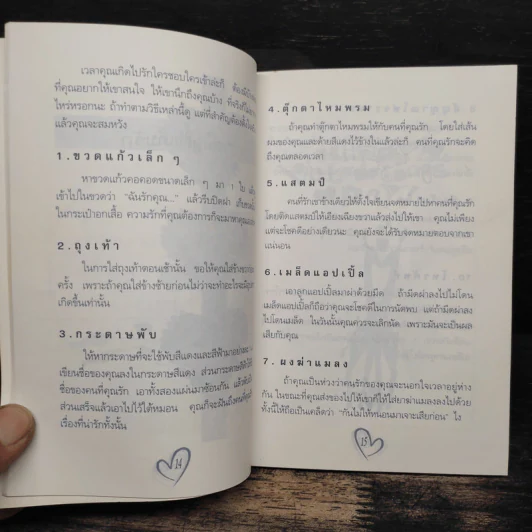 เวลาคุณเกิดไปรักใครชอบใครเข้าล่ะก็
ที่คุณอยากให้เขาสนใจ ให้เขานึกถึงคุณบ้าง
ไหร่หรอกนะ ถ้าทำตามวิธีเหล่านี้ดู แต่ที่สำคัญ
แล้วคุณจะสมหวัง
1.ขวดแก้วเล็ก ๆ
หาขวดแก้วคอคอดขนาดเล็ก ๆ มา 1 ใบ
เข้าไปในขวดว่า "ฉันรักคุณ..." แล้วรีบปิดฝา
ในกระเป๋าอกเสื้อ ความรักที่คุณต้องการก็จะมาหาคุณ
2.ถุงเท้า
ในการใส่ถุงเท้าตอนเช้านั้น ขอให้คุณใส่ข้าง
ครั้ง เพราะถ้าคุณใส่ข้างซ้ายก่อนไม่ว่าจะทำอะไรจะมี
เกิดขึ้นเท่านั้น
3.กระดาษพับ
ให้หากระดาษที่จะใช้พับสีแดงและสีฟ้ามาอย่างละ
เขียนชื่อของคุณลงในกระดาษสีแดง ส่วนกระดาษสีฟ้า
ชื่อของคนที่คุณรัก เอาทั้งสองแผ่นมาซ้อนกัน แล้วพับ
ส่วนเสร็จแล้วเอาไปไว้ใต้หมอน คุณก็จะฝันถึงคน
เรื่องที่น่ารักทั้งนั้น
14
4.ตุ๊กตาไหมพรม
ถ้าคุณทำตุ๊กตาไหมพรมให้กับคนที่คุณรัก โดยใส่เส้น
ผมของคุณและด้ายสีแดงไว้ข้างในแล้วล่ะก็ คนที่คุณรักจะคิด
ถึงคุณตลอดเวลา
5.แสตมป์
คนที่รักเขาข้างเดียวให้ตั้งใจเขียนจดหมายไปหาคนที่คุณรัก
โดยติดแสตมป์ให้เอียงเฉียงขวาแล้วส่งไปให้เขา คุณไม่เพียง
แต่จะโชคดีอย่างเดียวนะ คุณยังจะได้รับจดหมายตอบจากเขา
แน่นอน
6.เมล็ดแอปเปิ้ล
เอาลูกแอปเปิ้ลมาผ่าด้วยมีด ถ้ามีดผ่าลงไปไม่โดน
เมล็ดแอปเปิ้ลก็ถือว่าคุณจะโชคดีในการนัดพบ แต่ถ้ามีดผ่าลง
ไปโดนเมล็ด ในวันนั้นคุณควรจะเลิกนัด เพราะมันจะเป็นผล
เสียกับคุณ
7.ผงฆ่าแมลง
ถ้าคุณเป็นห่วงว่าคนรักของคุณจะนอกใจเวลาอยู่ห่าง
กัน ในขณะที่คุณส่งของไปให้เขาก็ให้ใส่ยาฆ่าแมลงลงไปด้วย
ทั้งนี้ให้ถือเป็นเคล็ดว่า "กันไม่ให้หนอนมาเจาะเสียก่อน" ไง
15